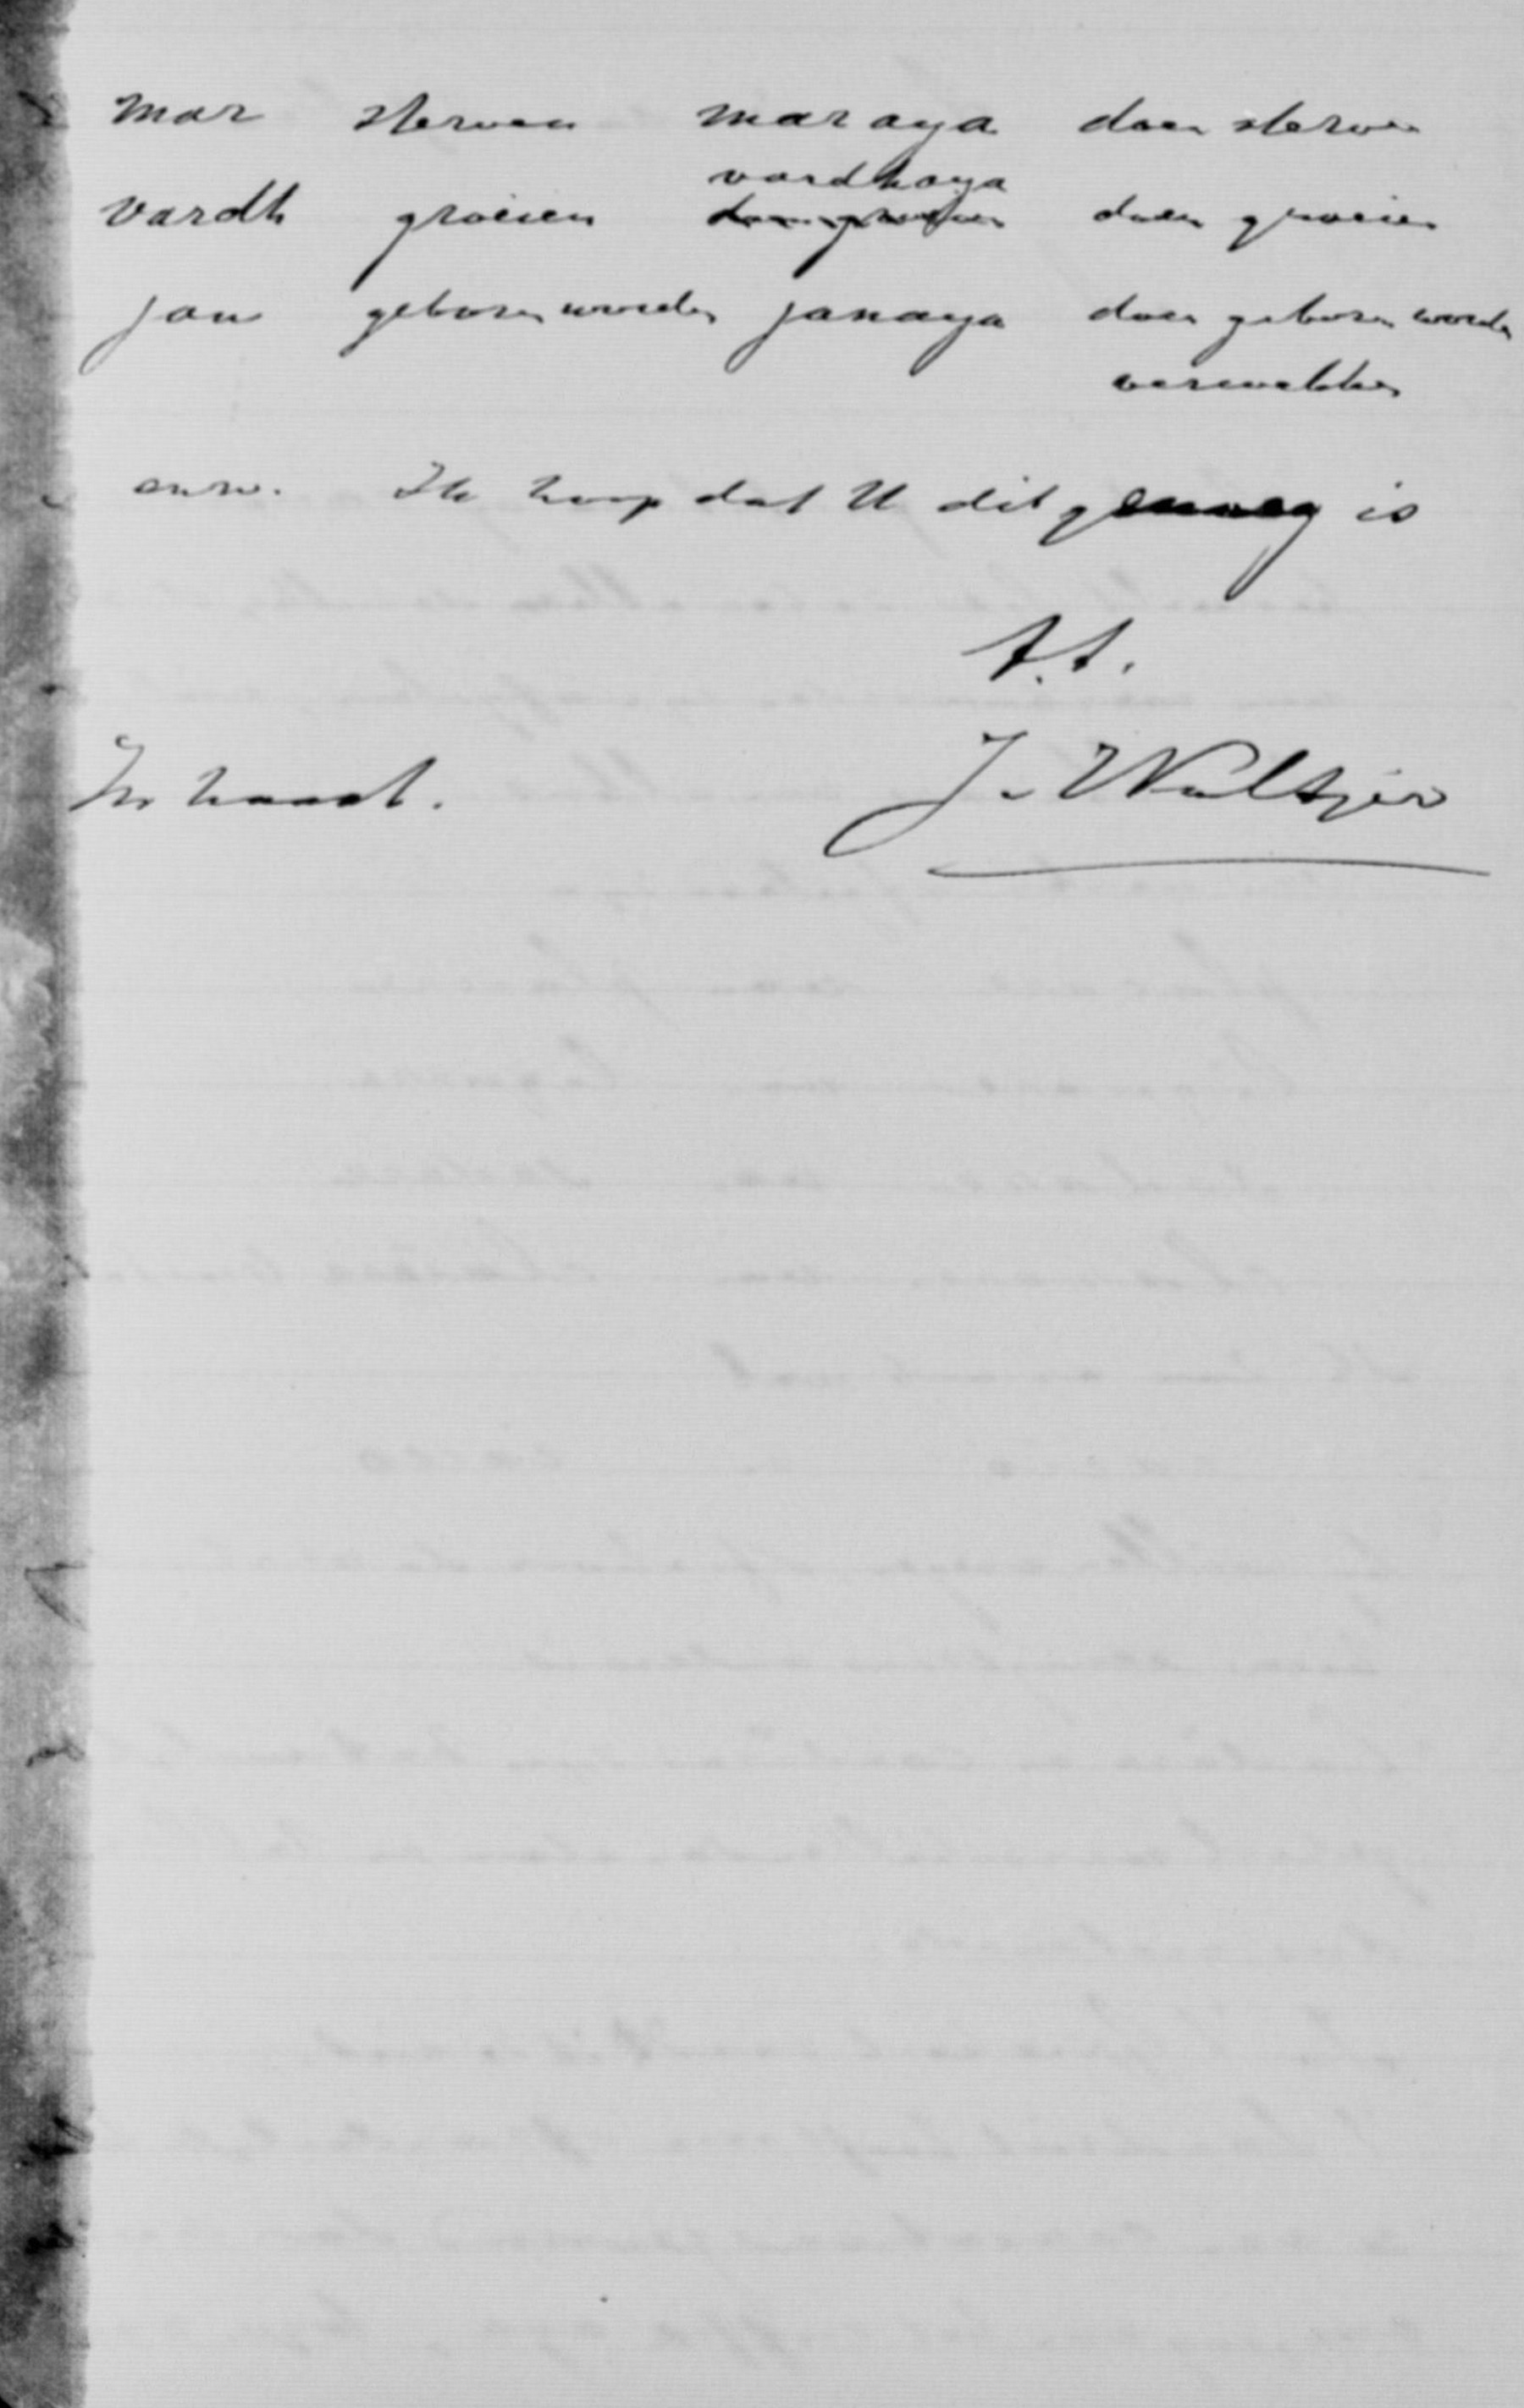 mar sterven maraya doen sterven
vardhaya
vardh groeien doen groeien doen groeien
jan geboren worden janaya doen geboren worden
verwekken
enzv. Ik hoop dat U dit genoeg is
t.t.
In haast. J. Woltjer